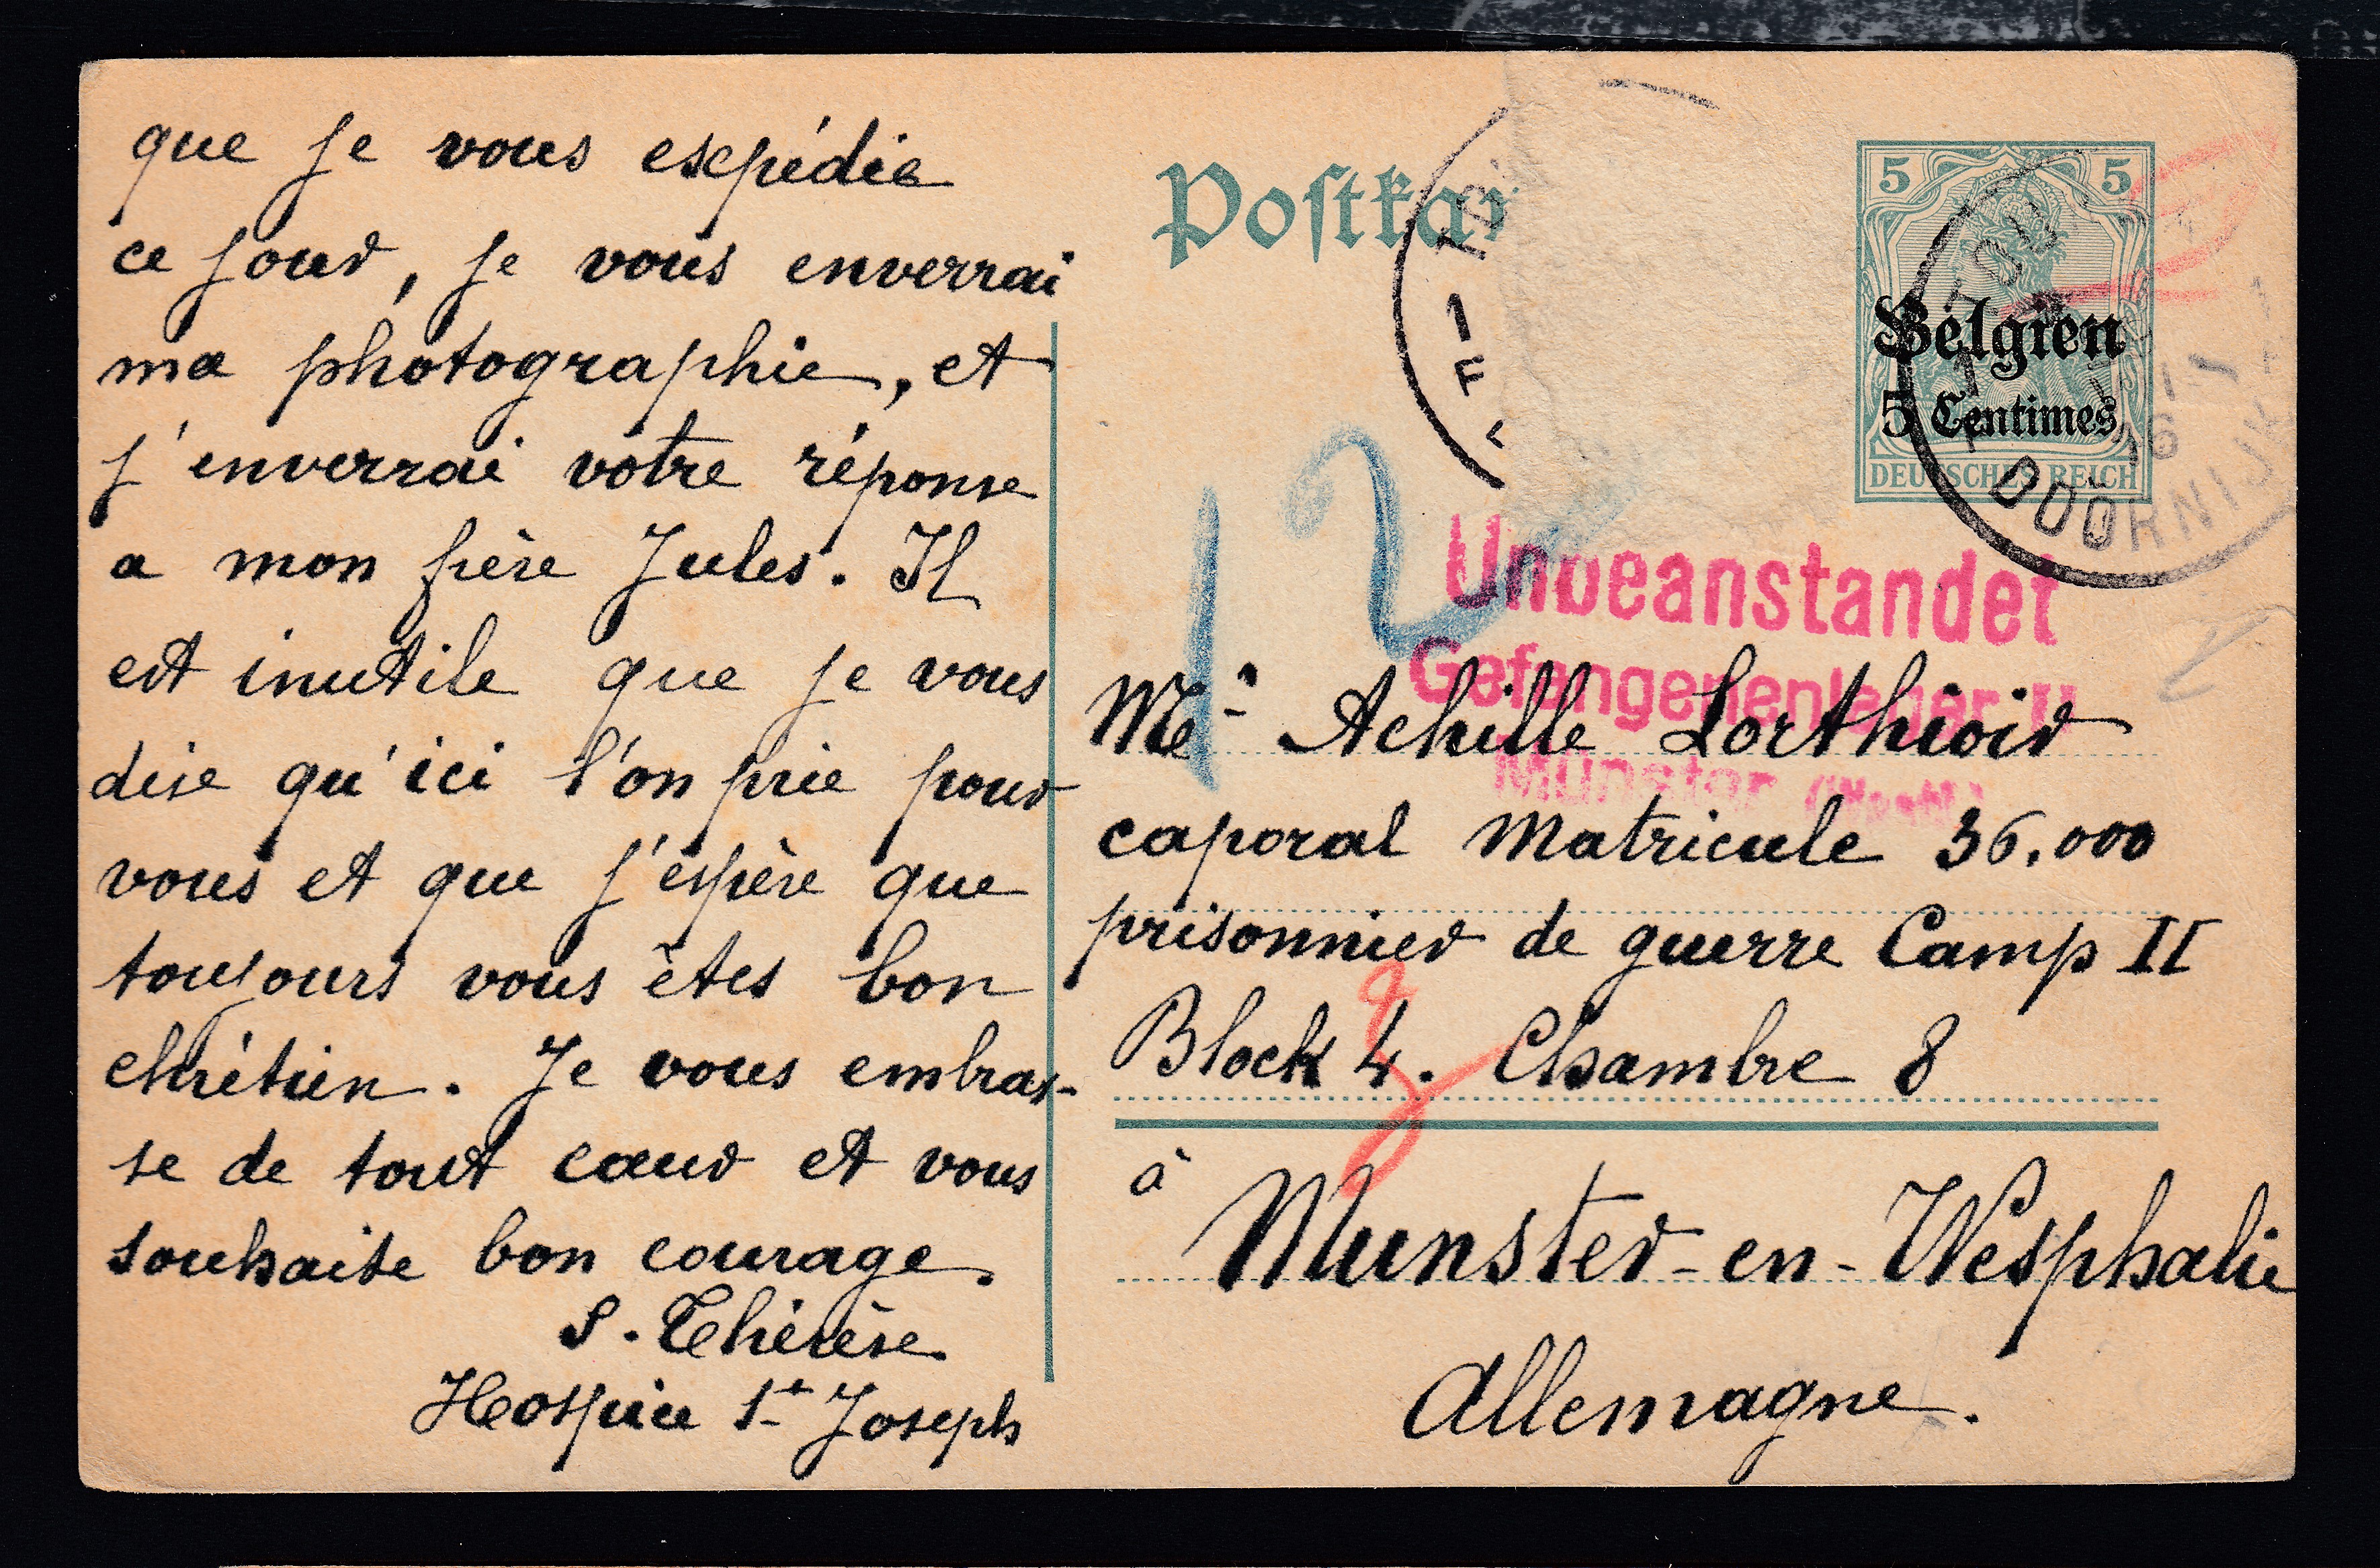 que je vous expédie
ce jour, je vous enverrai
ma photographie, et
j'enverrai votre réponse
a mon frère Jules. Il
est inutile que je vous
dise qu'ici l'on prie pour
vous et que j'espère que
toujours vous êtes bon
chrétien. Je vous embras-
se de tout cœur et vous
souhaite bon courage.
S. Thérèse
Hospice St Joseph
Postkar
5 5
Belgien
5 Centimes
DEUTSCHES REICH
DOORNIJK
12
Unbeanstandet
Gefangenenlager II
Münster
Mr Achille Lorthioir
caporal Matricule 36.000
prisonnier de guerre Camp II
Block 4. Chambre 8
à
Munster-en-Wesphalie
Allemagne.